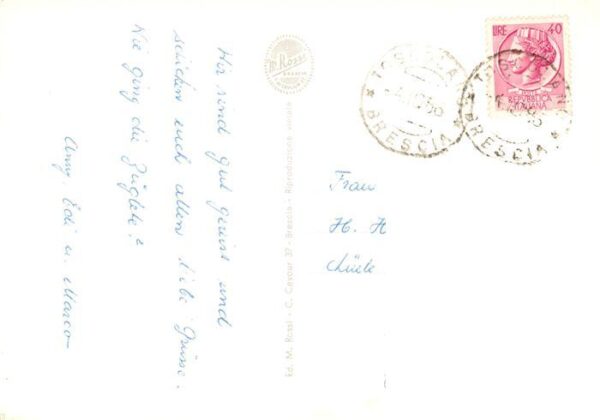 Wir sind gut gereist und
senden euch allen liebe Grüsse.
Wie ging die Züglete?
Anny, Edi u. Marco
Ed. M. Rossi - C. Cavour 37 - Brescia - Riproduzione vietata
Rossi
BRESCIA
LIRE 40
REPUBBLICA
ITALIANA
BRESCIA
BRESCIA
Frau
H. H